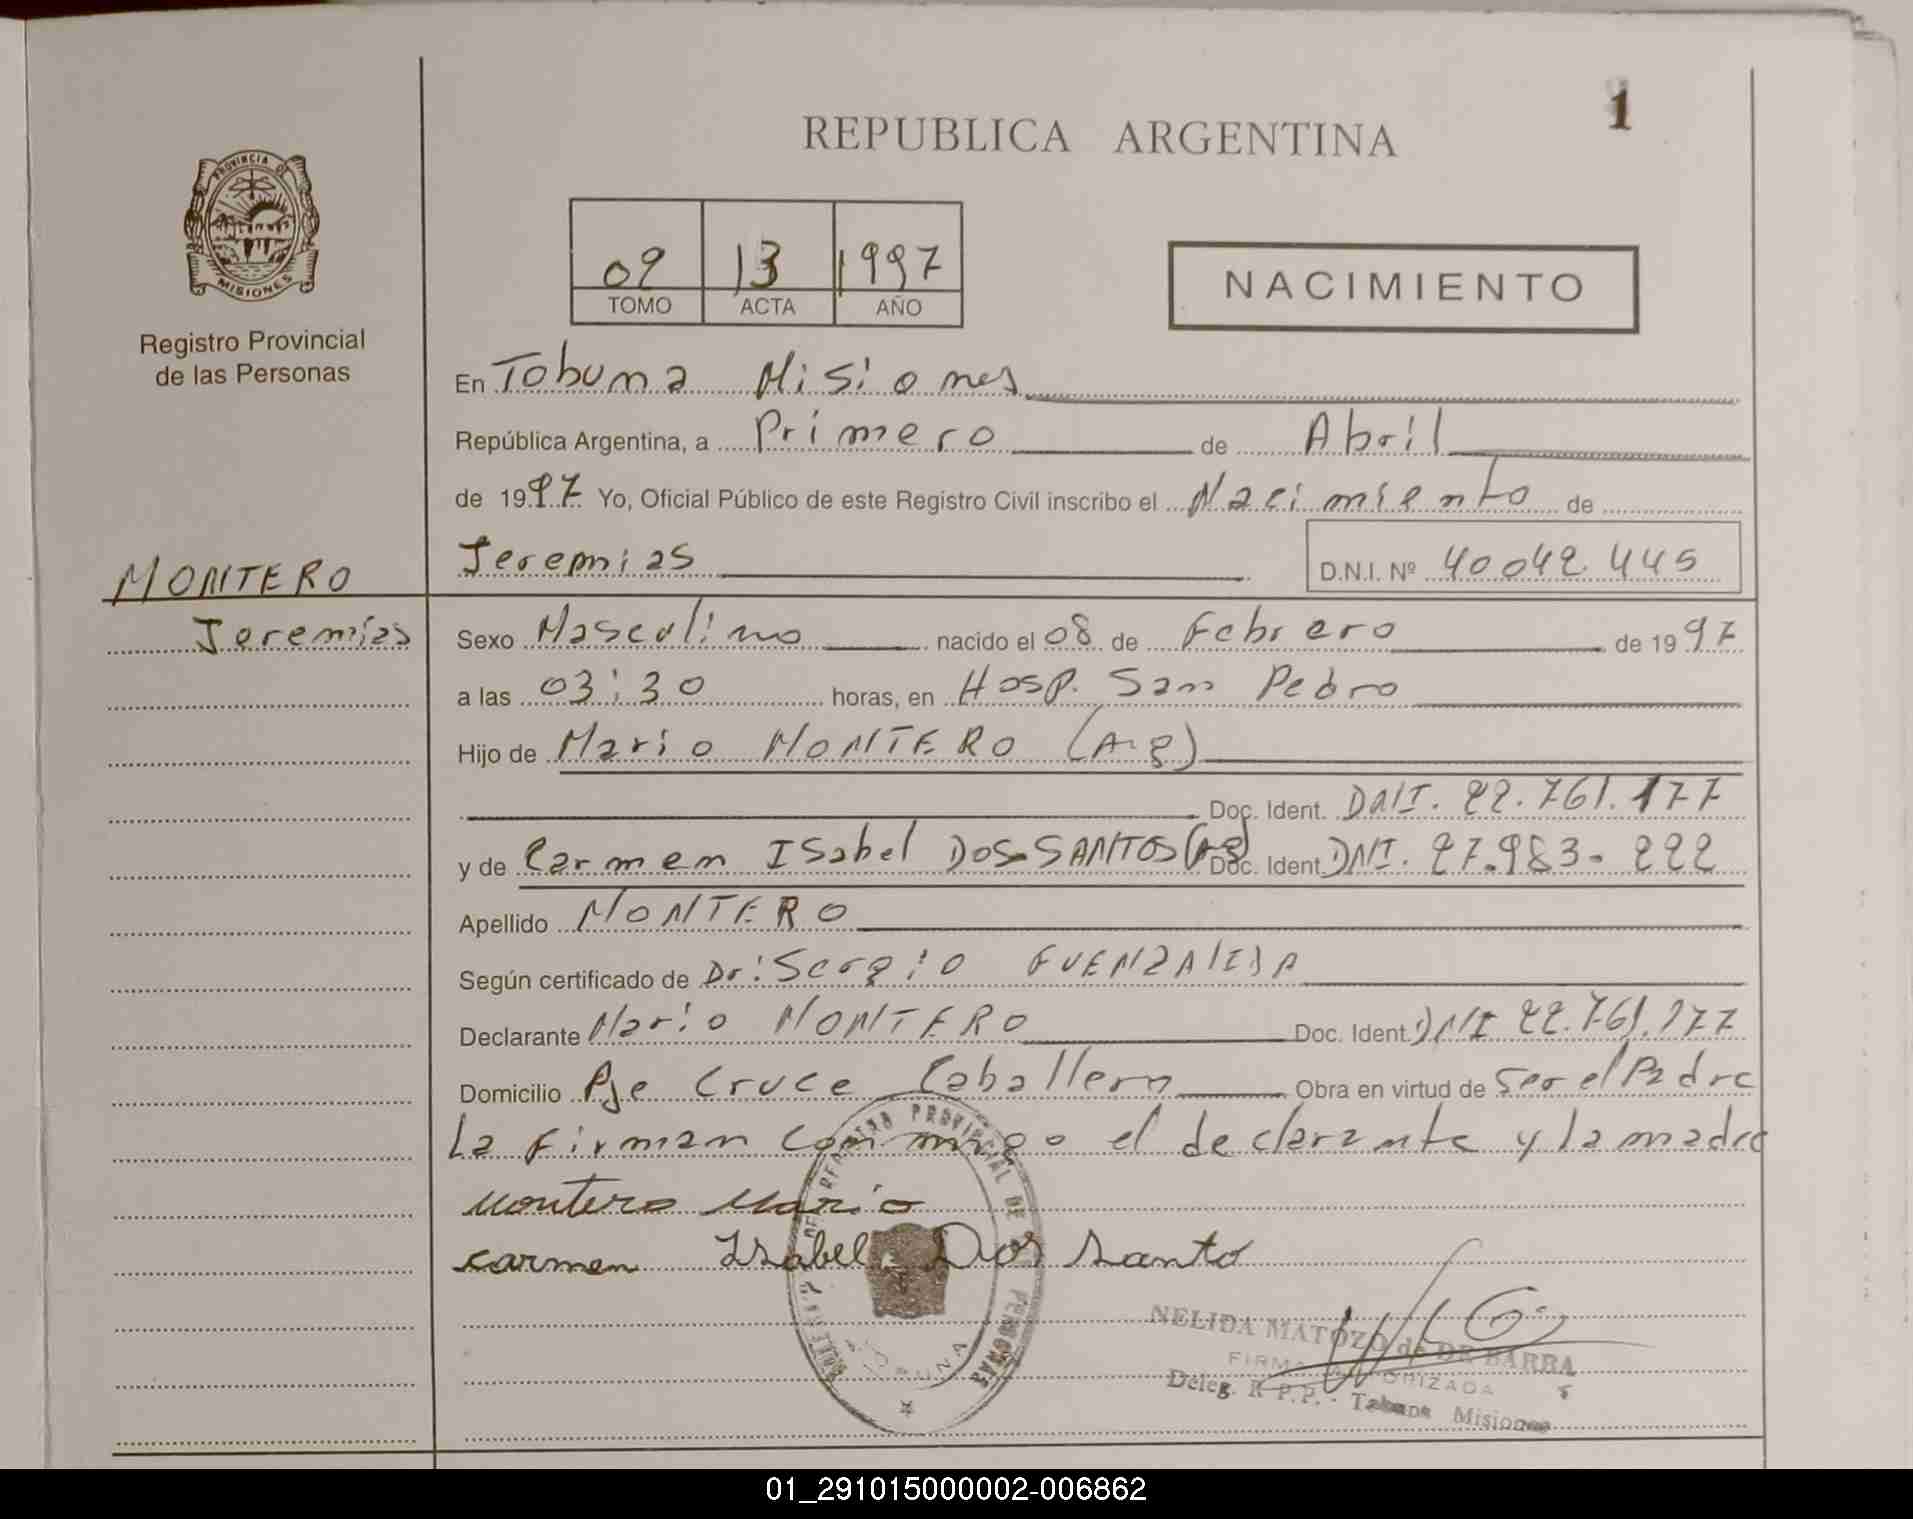 1
REPUBLICA ARGENTINA
PROVINCIA DE
MISIONES
Registro Provincial
de las Personas
02 13 1997
TOMO ACTA AÑO
NACIMIENTO
En Tobuna Misiones
República Argentina, a Primero de Abril
de 1997 Yo, Oficial Público de este Registro Civil inscribo el Nacimiento de
Jeremias D.N.I. Nº 40042.445
MONTERO
Jeremías
Sexo Masculino nacido el 08 de Febrero de 1997
a las 03:30 horas, en Hosp. San Pedro
Hijo de Mario MONTERO (Arg)
Doc. Ident. DNI. 22.761.177
y de Carmen ISabel DOS SANTOS (Arg) Doc. Ident. DNI. 27.983.222
Apellido MONTERO
Según certificado de Dr: Sergio FUENZALIDA
Declarante Mario MONTERO Doc. Ident. DNI 22.761.177
Domicilio Pje Cruce Caballero Obra en virtud de Ser el Padre
La firman conmigo el declarante y la madre
Montero Mario
carmen Isabel Dos Santo
REGISTRO PROVINCIAL DE PERSONAS
NELIDA MATOZO de DE BARRA
FIRMA AUTORIZADA
Deleg. R.P.P. - Tobuna Misiones
01_291015000002-006862